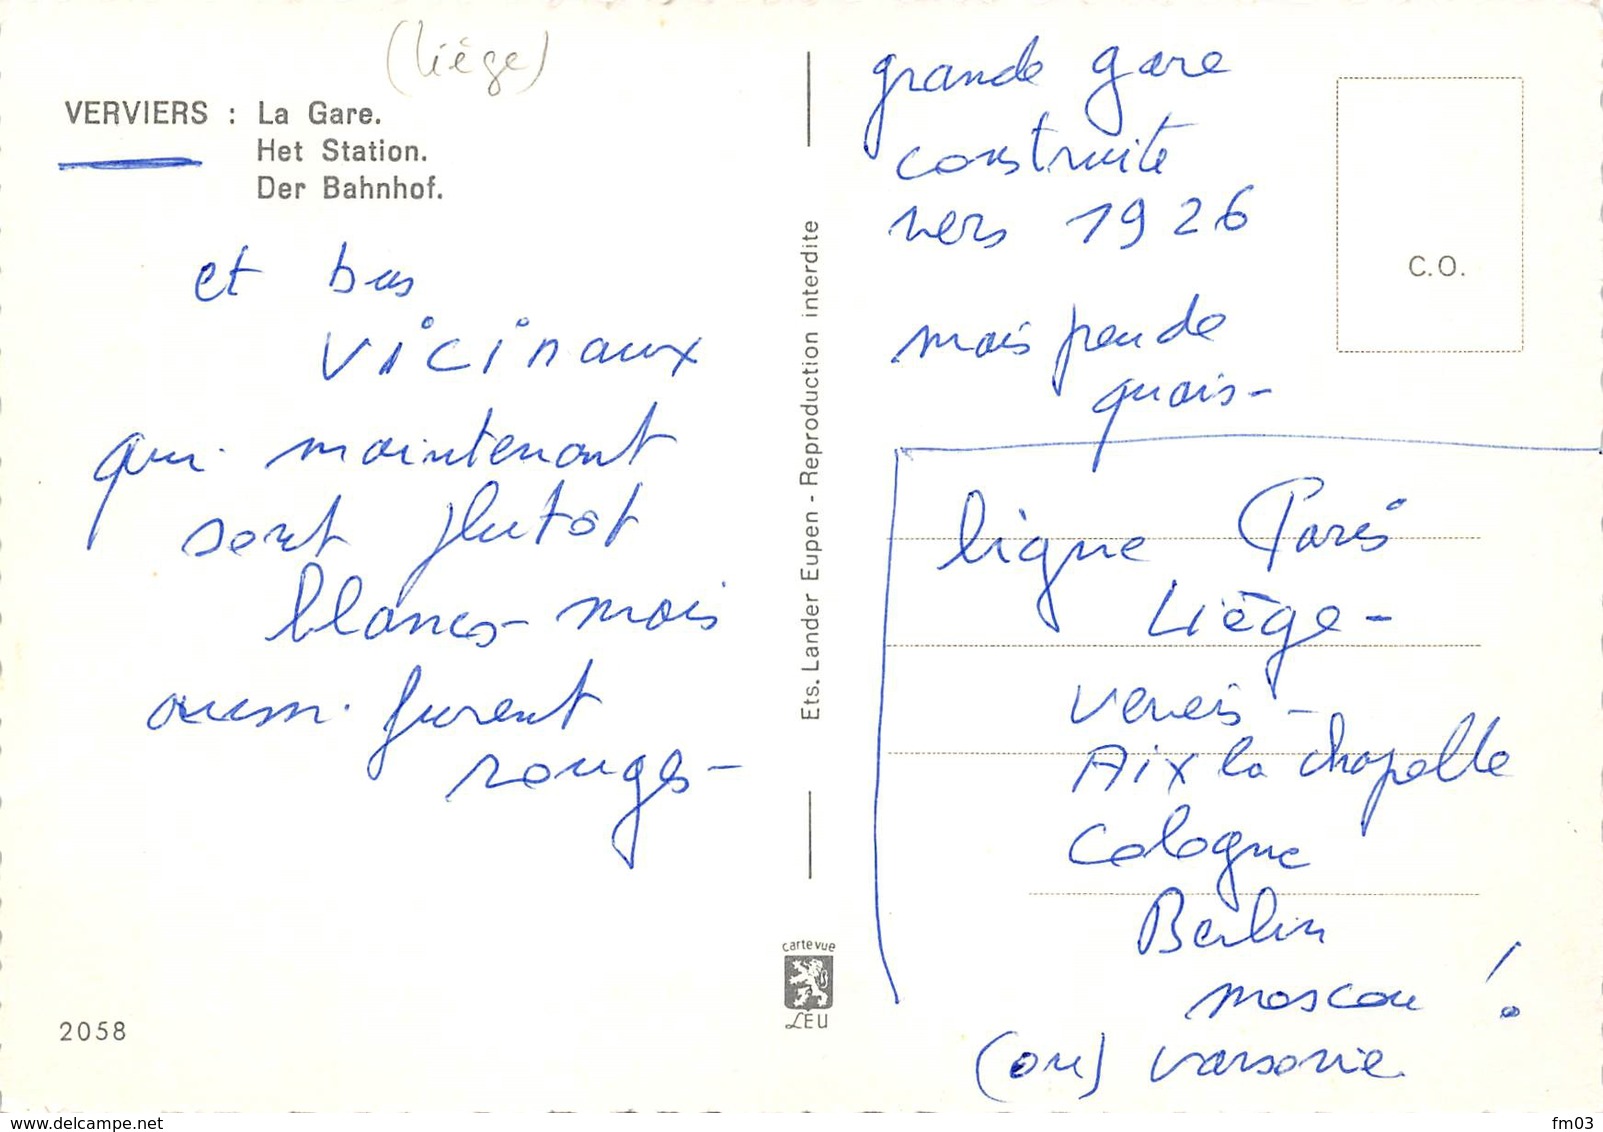 (Liège)
VERVIERS : La Gare.
Het Station.
Der Bahnhof.
et bus
vicinaux
qui maintenant
sont plutôt
blancs - mais
aussi furent
rouges -
2058
Ets. Lander Eupen - Reproduction interdite
carte vue
LEU
grande gare
construite
vers 1926
mais peu de
quais -
C.O.
ligne Paris
Liège -
Verviers -
Aix la chapelle
Cologne
Berlin
Moscou !
(ou) varsovie
www.delcampe.net
fm03